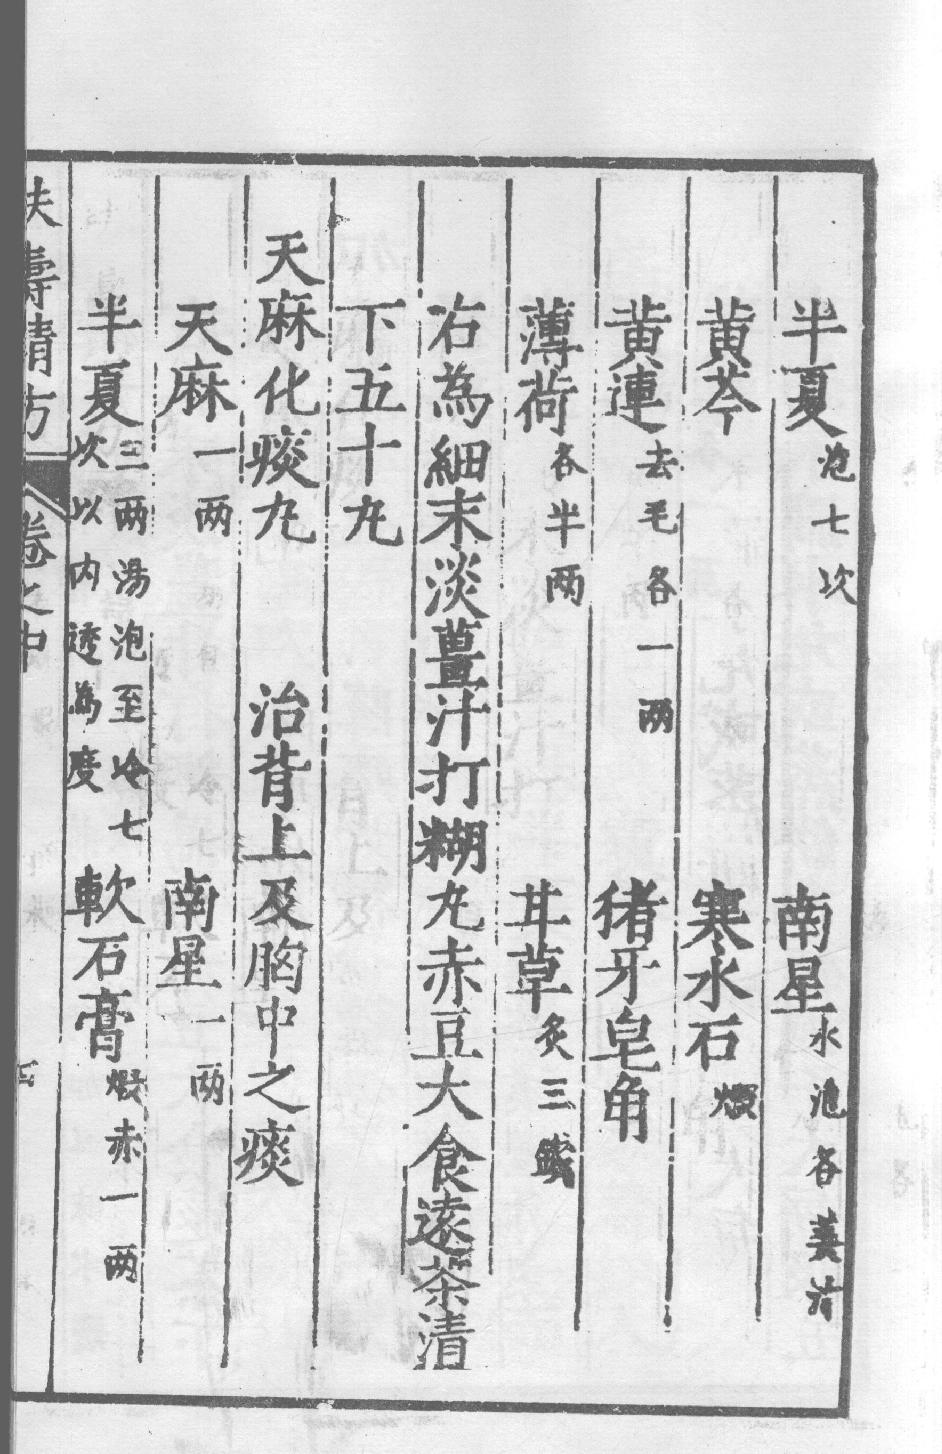 半夏泡七次 南星水泡各姜汁
黄芩 寒水石煅
黄連去毛各一两 猪牙皂角
薄荷各半两 甘草炙三錢
右為細末淡薑汁打糊丸赤豆大食遠茶清
下五十丸
天麻化痰丸 治背上及胸中之痰
天麻一两 南星一两
半夏三两湯泡至冷七次以内透為度 軟石膏煅赤一两
扶壽精方 卷之中